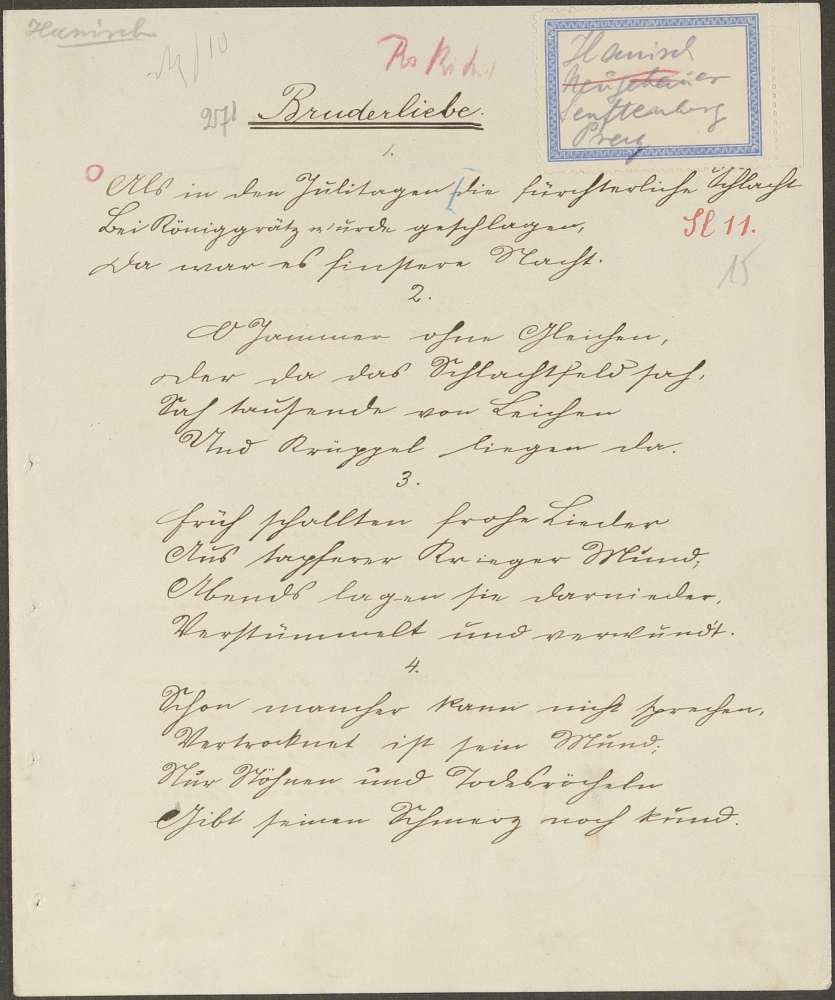 Hanisch
Hanisch
Neugebauer
Senftenberg
257
Bruderliebe.
1.
Als in den Julitagen die fürchterliche Schlacht
Bei Königgrätz wurde geschlagen,
Da war es finstere Nacht.
Sl 11.
15
2.
O Jammer ohne Gleichen,
Der da das Schlachtfeld sah,
Sah tausende von Leichen
Und Krüppel liegen da.
3.
Früh schallten frohe Lieder
Aus tapferer Krieger Mund;
Abends lagen sie darnieder,
Verstümmelt und verwundt.
4.
Schon mancher kann nicht sprechen,
Vertrocknet ist sein Mund;
Nur Stöhnen und Todesröcheln
Gibt seinen Schmerz noch kund.